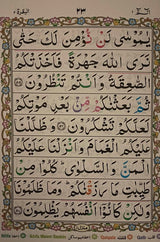 ٢٣
يٰمُوْسٰى لَنْ نُّؤْمِنَ لَكَ حَتّٰى
نَرَى اللّٰهَ جَهْرَةً فَاَخَذَتْكُمُ
الصّٰعِقَةُ وَاَنْتُمْ تَنْظُرُوْنَ
ثُمَّ بَعَثْنٰكُمْ مِّنْۢ بَعْدِ مَوْتِكُمْ
لَعَلَّكُمْ تَشْكُرُوْنَ وَظَلَّلْنَا
عَلَيْكُمُ الْغَمَامَ وَاَنْزَلْنَا عَلَيْكُمُ
الْمَنَّ وَالسَّلْوٰى كُلُوْا مِنْ
طَيِّبٰتِ مَا رَزَقْنٰكُمْ وَمَا ظَلَمُوْنَا
وَلٰكِنْ كَانُوْٓا اَنْفُسَهُمْ يَظْلِمُوْنَ